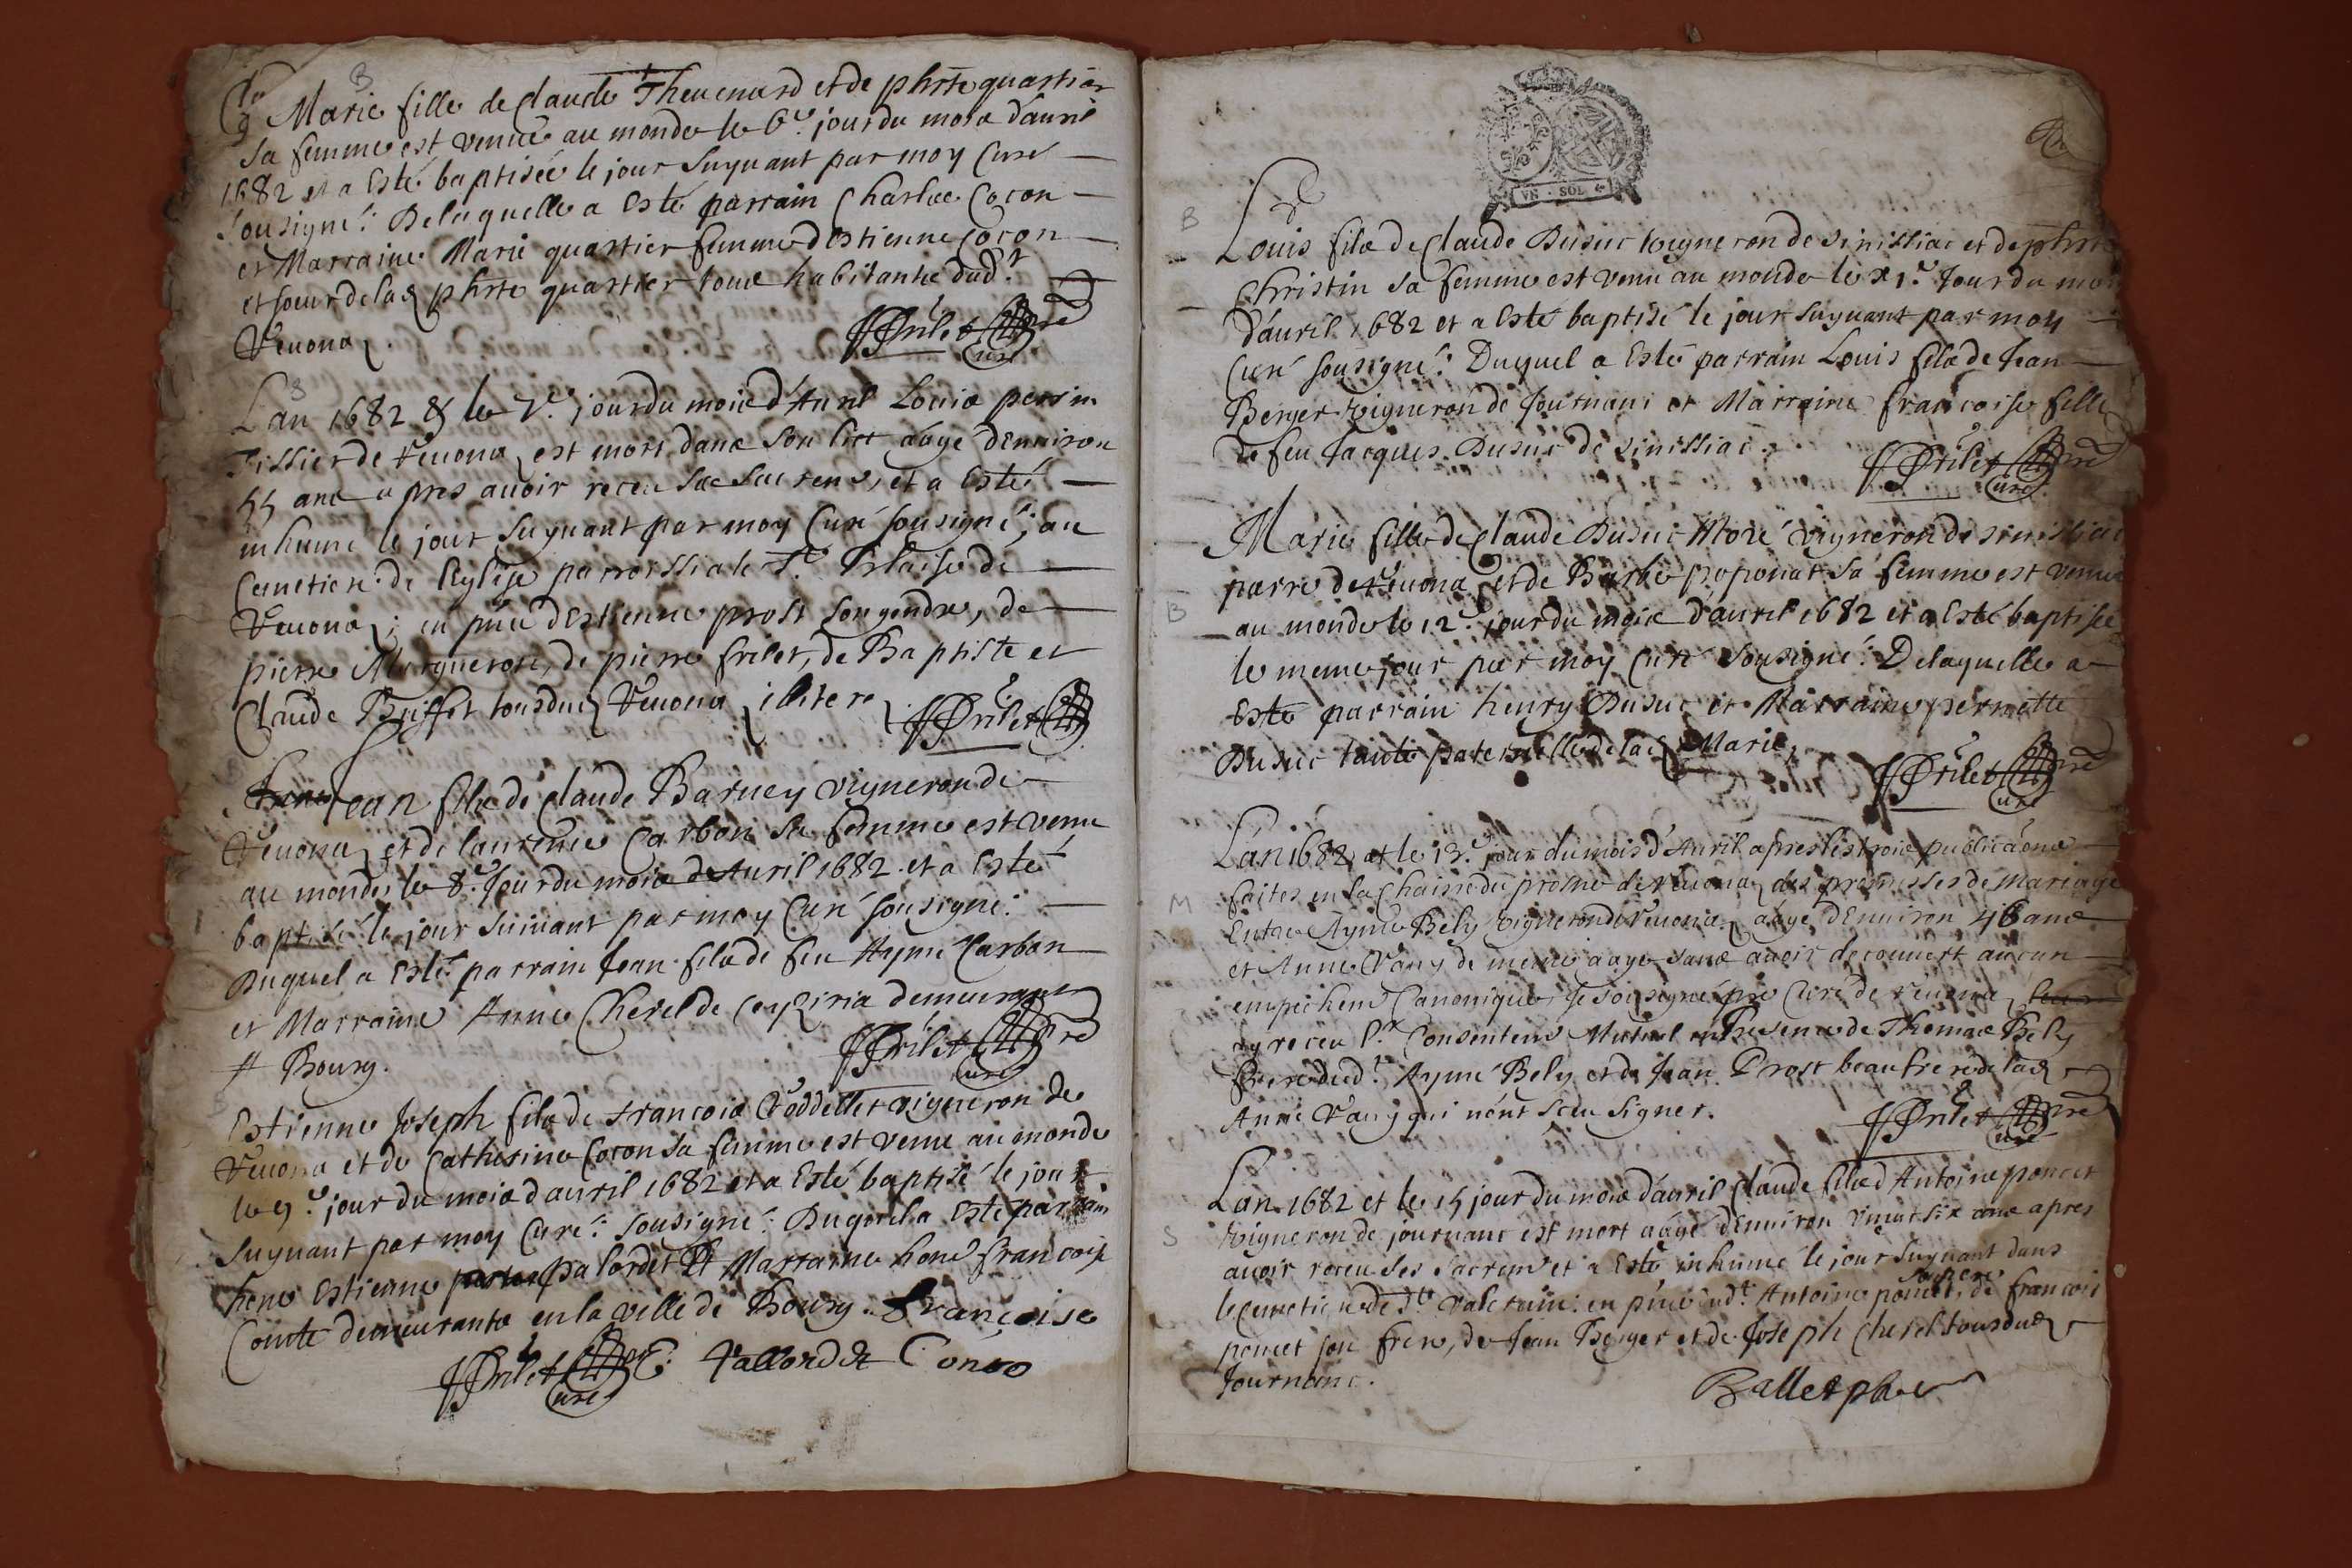 B
Marie fille de Claude Theuenard et de phrte quartier
sa femme est venüe au monde le 6e. jour du mois d'auril
1682 et a Esté baptisée le jour suyuant par moy Curé
sousigné: De laquelle a Esté parrain Charles Cocon
et Marraine Marie quartier femme d'Estienne Cocon
et soeur de lad phrte quartier tous habitants dud.t
Reuona.
frilet pre
Curé
B
L'an 1682 & le 7e. jour du mois d'Auril Louis perrin
Tissier de Reuona est mort dans son lict aâgé d'enuiron
55 ans apres auoir receu ses sacrens, et a Esté
inhumé le jour suyuant par moy Curé sousigné; au
Cemetiere de l'Eglise parroissiale St. Blaise de
Reuona; en pnce d'Estienne prost son gendre, de
pierre Morgneron, de pierre frilet, de Baptiste et
Claude Buffet tous dud Reuona illitere
frilet
Jean fils de Claude Barney vigneron de
Reuona et de laurence Carbon sa femme est venu
au monde le 8e. Jour du mois de Auril 1682. et a Esté
baptisé le jour suiuant par moy Curé sousigné:
Duquel a Esté parrain Jean fils de feu Aymé Carbon
et Marraine Anne Cherel de Ceyziria demeurant
A Bourg.
frilet pre
Curé
Estienne Joseph fils de francois Roddellet vigneron de
Reuona et de Catherine Cocon sa femme est venu au monde
le 9e. jour du mois d'auril 1682 et a Esté baptisé le jour
suyuant par moy Curé: sousigné: Duquel a Esté parrain
hone Estienne palordet Et Marraine hone francoise
Comte demeurants en la ville de Bourg. Françoise
frilet pre E. Pallordet Conte
Curé
VN · SOL
B
Louis fils de Claude Dusuc vigneron de Sinissiac et de phrte
Christin sa femme est venu au monde le x1e. Jour du mois
d'auril 1682 et a Esté baptisé le jour suyuant par moy
Curé sousigné: Duquel a Esté parrain Louis fils de Jean
Berger vigneron de Journans et Marraine francoise fille
de feu Jacques Dusuc de Sinissiac.
frilet pre
Curé
B
Marie fille de Claude Dusuc Moré vigneron de Sinissiac
parre de Reuona et de Barbe poponat sa femme est venue
au monde le 12e. jour du mois d'auril 1682 et a Esté baptisée
le meme jour par moy Curé sousigné: De laquelle a
Esté parrain henry Dusuc et Marraine pernette
Dusuc tante paternelle de lad Marie.
frilet pre
Curé
M
L'an 1682 et le 13e. jour du mois d'Auril apres les trois publicaons
faites en la Chaire du prosne de Reuona des promesses de Mariage
Entre Aymé Bely vigneron de Reuona aâgé d'Enuiron 46 ans
et Anne Vauy de meme aage sans auoir decouuert aucun
empechemt Canonique, Je sousigné pre Curé de reuona
ay receu lr. Consentemt Mutuel en Presence de Thomas Bely
frere dud.t Aymé Bely et de Jean Prost beau frere de lad
Anne Vauy qui n'ont sceu signer.
frilet pre
Curé
S
L'an 1682 et le 15 jour du mois d'auril Claude fils d'Antoine poncet
vigneron de journans est mort aâgé d'Enuiron vingt six ans apres
auoir receu ses sacremt et a Esté inhumé le jour suyuant dans
le Cemetiere de St. Valerain: en pnce dud.t Antoine poncet son pere, de francois
poncet son frere, de Jean Berger et de Joseph Cherel tous dud
Journans.
Ballet pbr